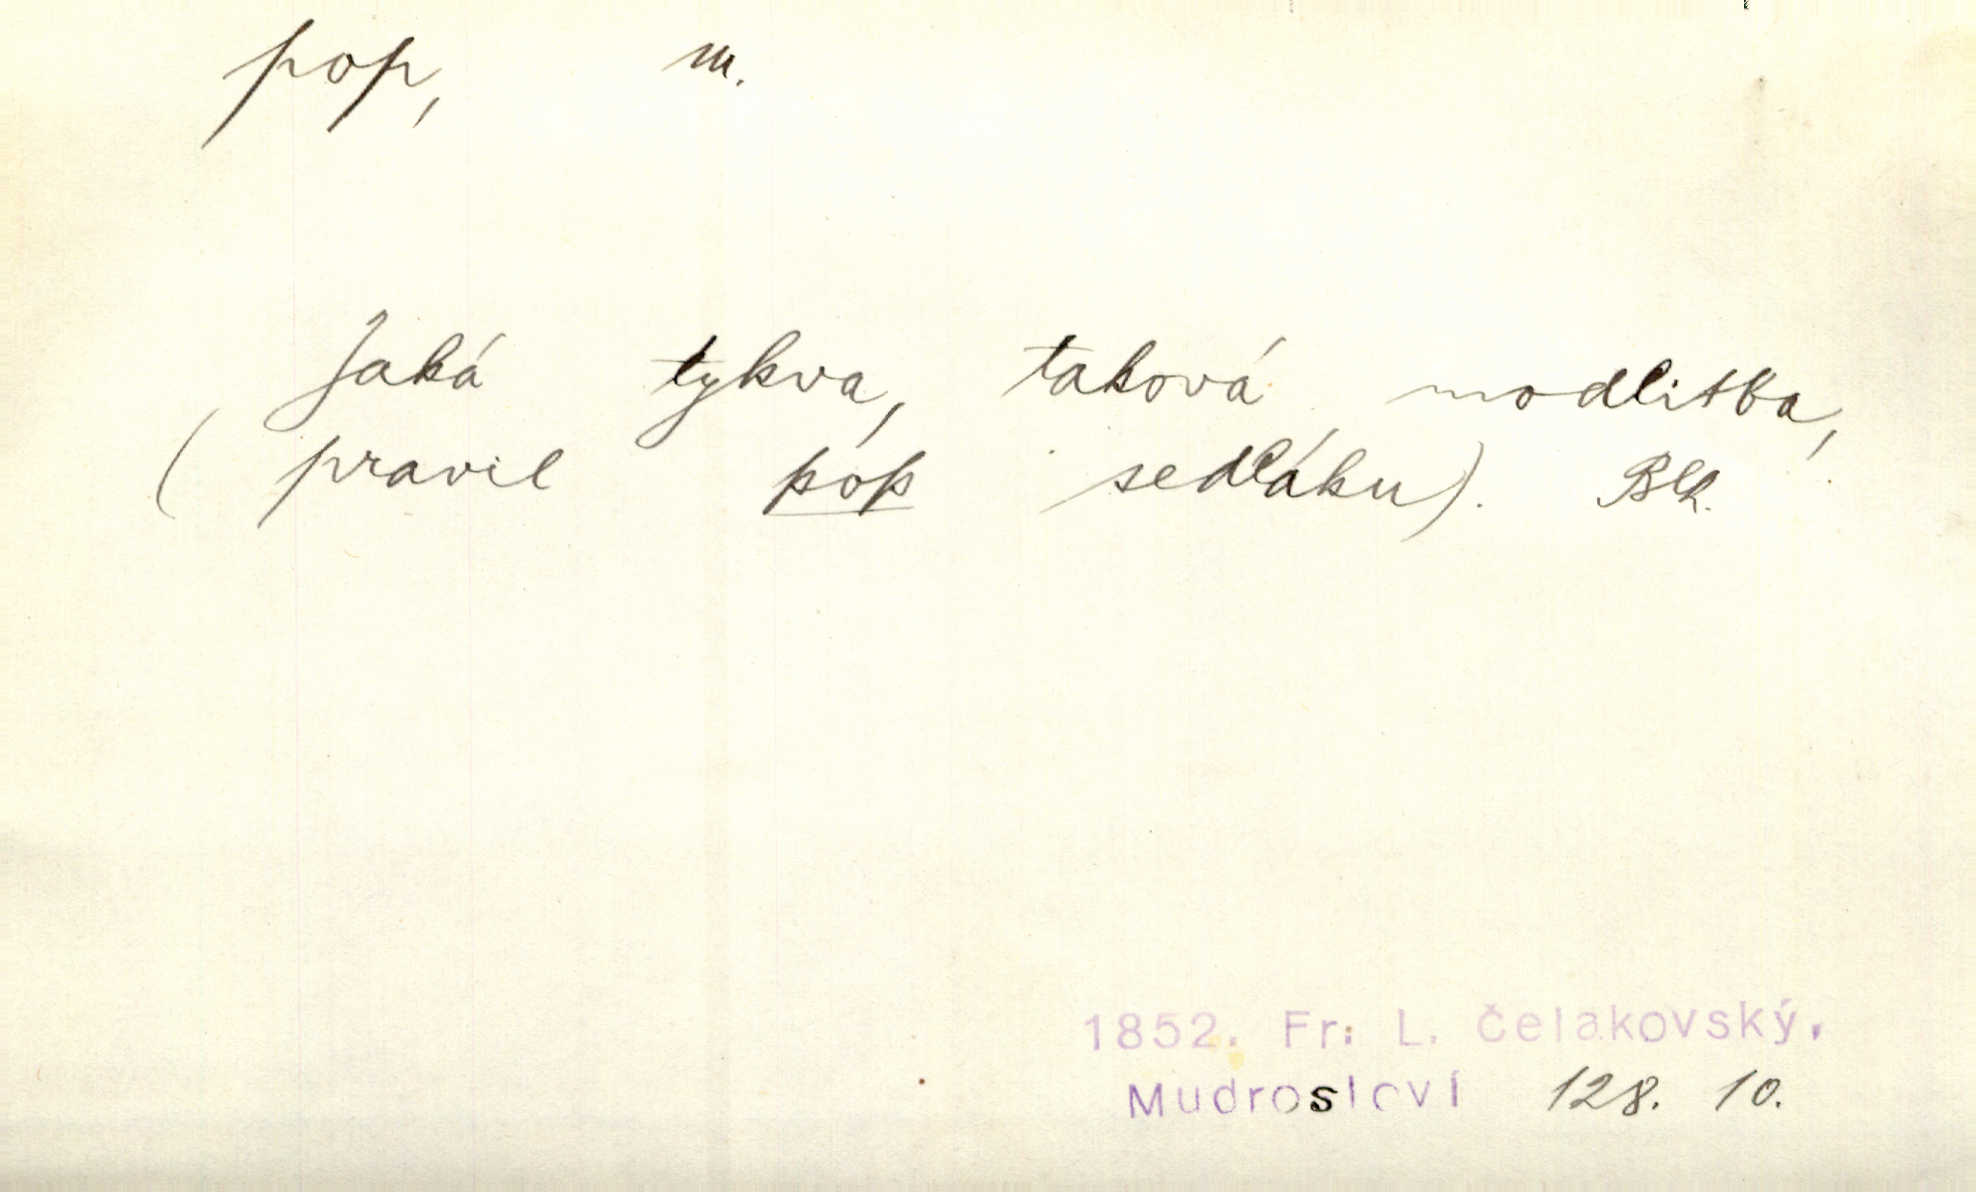 pop, m.
Jaká tykva, taková modlitba,
(pravil pop sedláku). Blh.
1852. Fr. L. Čelakovský.
Mudrosloví 128. 10.